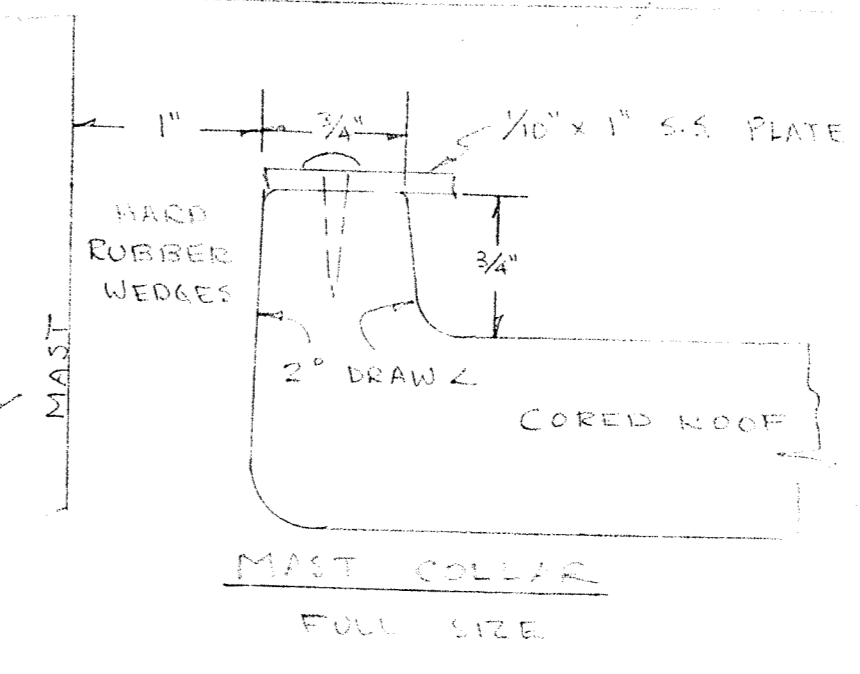 1"
3/4"
1/10" x 1" S.S. PLATE
HARD
RUBBER
WEDGES
3/4"
MAST
2° DRAW ∠
CORED ROOF
MAST COLLAR
FULL SIZE